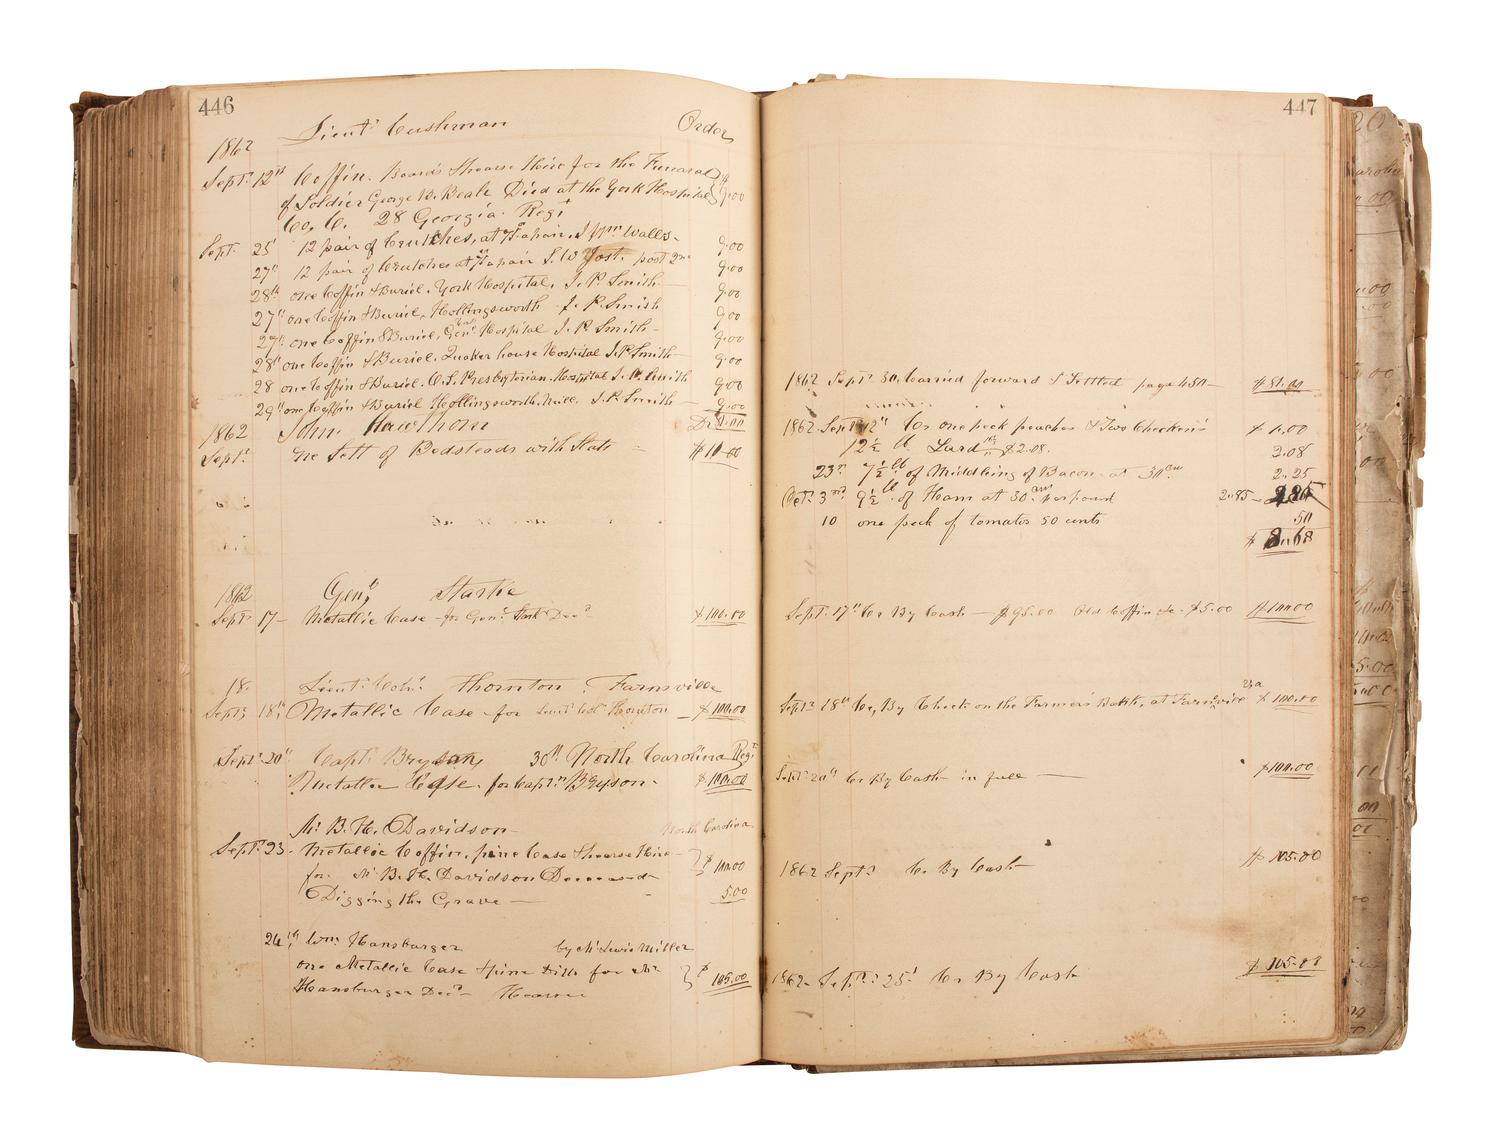 446
Lieut. Cushman Order
1862
Sept. 12th Coffin. Board & hearse Hire for the Funeral
of Soldier George W. Beale Died at the York Hospital $9.00
Co. C. 28 Georgia. Regt
Sept. 25 12 pair of Crutches, at a pair, Wm Walls. 9.00
27th 12 pair of Crutches at a pair S. W Yost. 9.00
28th one Coffin & Buriel. York Hospital, J. P. Smith 9.00
27th one Coffin & Buriel, Hollingsworth J. P. Smith 9.00
27th one Coffin & Buriel, Genl Hospital J. P. Smith 9.00
28th one Coffin & Buriel. Quaker house Hospital J. P. Smith 9.00
28 one Coffin & Buriel. O. S. Presbyterian. Hospital J. P. Smith 9.00
29th one Coffin & Buriel Hollingsworth Mill. J. P. Smith 9.00
1862 John Hawthorn Dr
Sept. one Sett of Bedsteads with Slats $ 11.00
1862 Genl Starke
Sept. 17 Metallic Case for Genl Stark Decd $ 100.00
18. Lieut Coln. Thornton. Farmville
Sept. 18th Metallic Case for Lieut Col Thornton $ 100.00
Sept. 20th Capt. Bryson, 30th North Carolina Regt
Metallic Case. for Captn Bryson $ 100.00
Mr B. H. Davidson North Carolina
Sept. 23 Metallic Coffin, pine Case & hearse Hire
for Mr B. H. Davidson Deceased $ 100.00
Digging the Grave 5.00
24th Wm Hansburger by Mr Lewis Miller
one Metallic Case & pine for Mr
Hansburger Decd Hearse $ 105.00
447
1862 Sept. 30. Carried forward & Settled page 450 $ 81.00
1862. Sept. 12th Cr one peck peaches & Two Chickens $ 1.00
12½ lb Lard $2.08. 2.08
23rd 7½ lb of Middling of Bacon at 30 2.25
Oct. 3rd 9½ lb of Ham at 30 per pound 2.85
10 one peck of tomatos 50 cents 50
$ 8.68
Sept. 17th Cr By Cash $95.00 Old Coffin &c $5.00 $ 100.00
Sept. 18th Cr, By Check on the Farmers Bank, at Farmville Va $ 100.00
Sept 20th Cr By Cash in full $ 100.00
1862 Sept. Cr By Cash $ 105.00
1862 Sept. 25 Cr By Cash $ 105.00